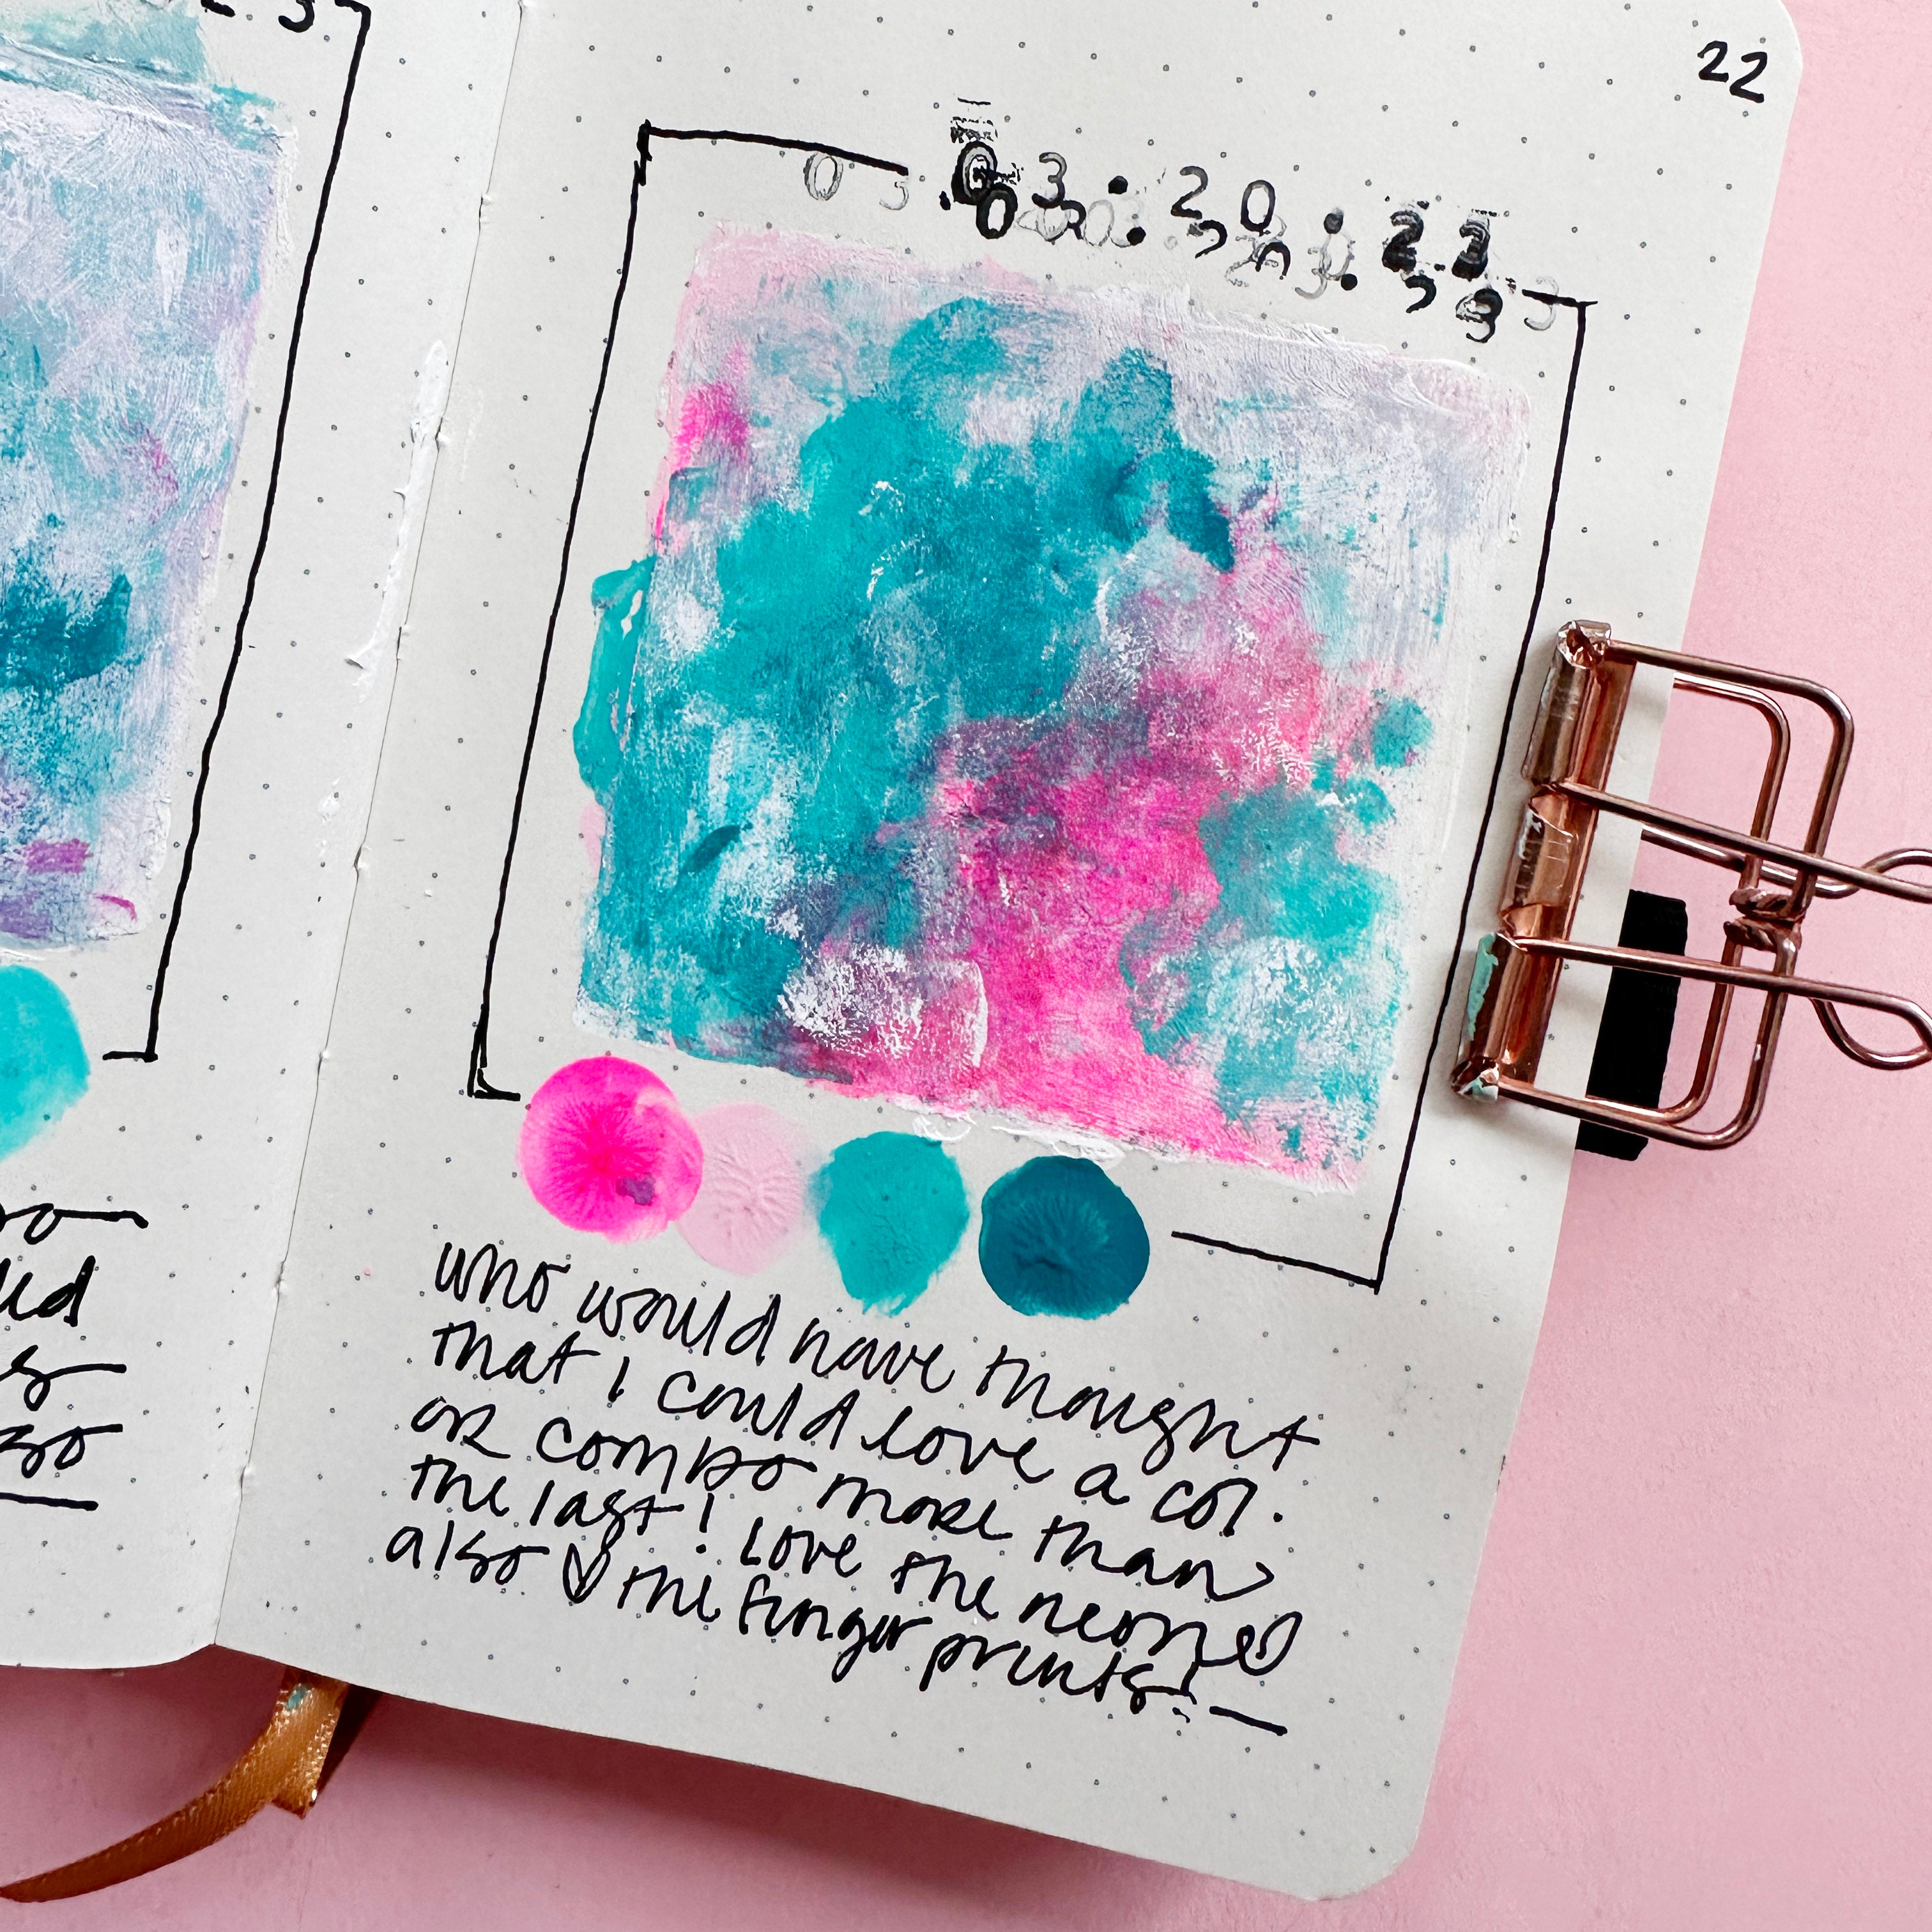 22
03.20.23
who would have thought
that I could love a col.
or combo more than
the last! Love the neone
also ♡ the finger prints!